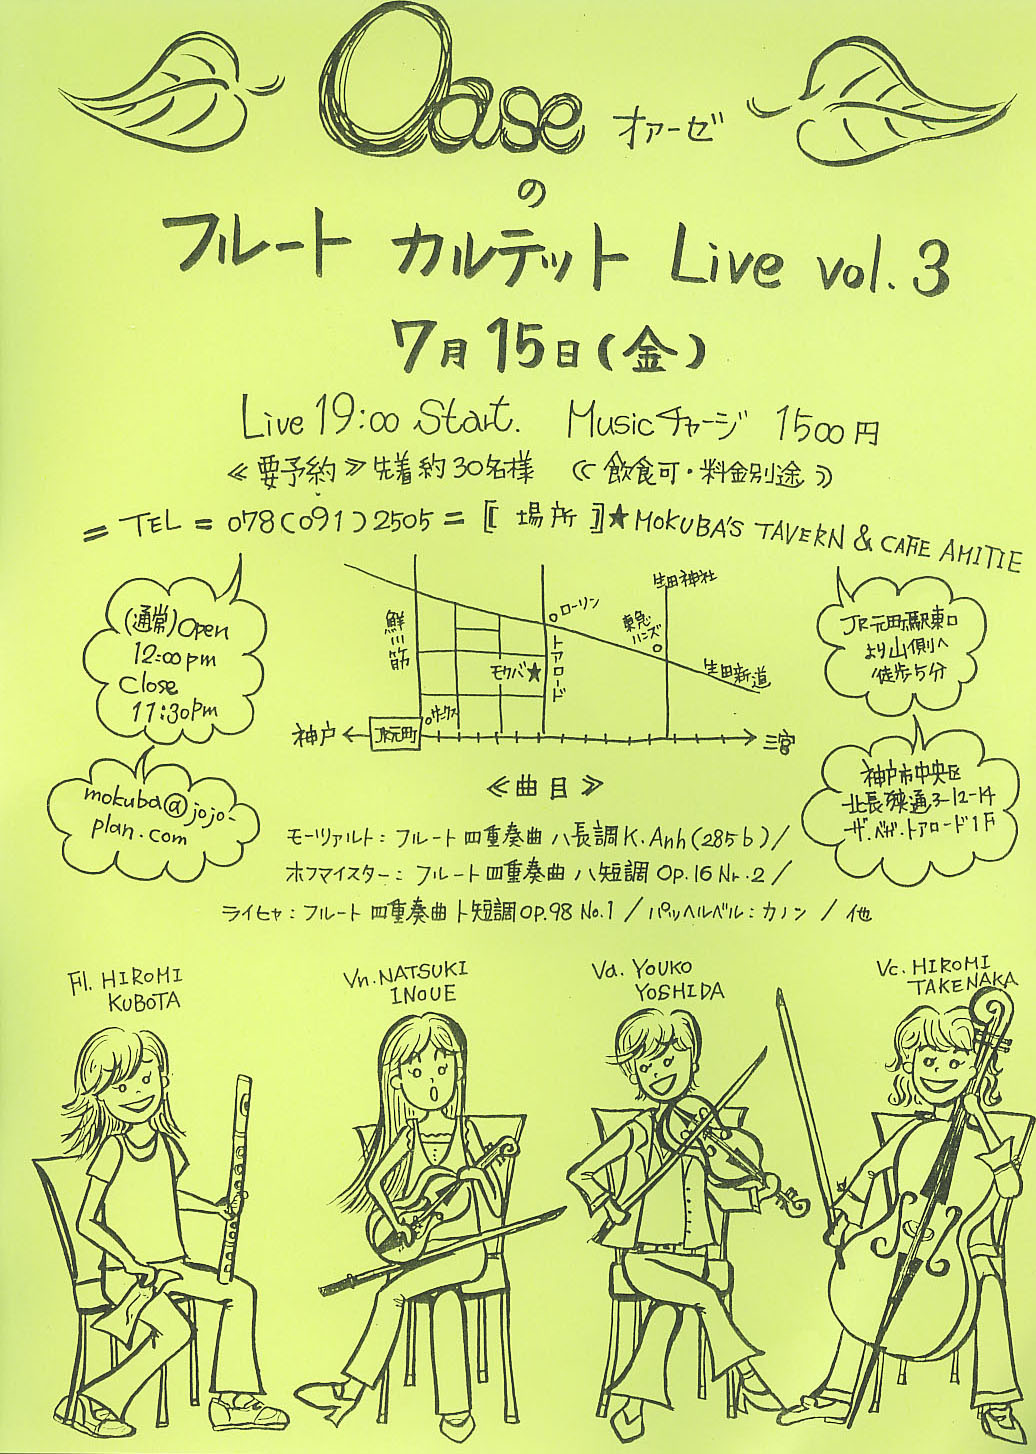 Oase オアーゼ
の
フルート カルテット Live vol.3
7月15日(金)
Live 19:00 Start. Musicチャージ 1500円
≪要予約≫先着約30名様 ≪飲食可・料金別途≫
=TEL=078(091)2505=[場所]★MOKUBA'S TAVERN & CAFE AMITIE
(通常)Open
12:00pm
Close
11:30pm
mokuba@jojo-
plan.com
鯉川筋
モクバ★
トアロード
ローリン
東急
ハンズ
生田神社
生田新道
サンクス
神戸
JR元町
三宮
JR元町駅東口
より山側へ
徒歩5分
神戸市中央区
北長狭通3-12-14
ザ・ベガ・トアロード1F
≪曲目≫
モーツァルト:フルート四重奏曲ハ長調K.Anh(285b)/
ホフマイスター:フルート四重奏曲ハ短調Op.16 Nr.2/
ライヒャ:フルート四重奏曲ト短調OP.98 No.1/パッヘルベル:カノン/他
Fl. HIROMI
KUBOTA
Vn. NATSUKI
INOUE
Va. YOUKO
YOSHIDA
Vc. HIROMI
TAKENAKA